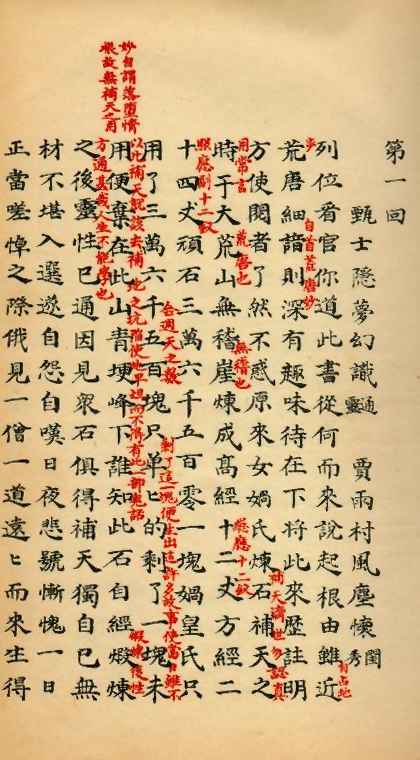 第一回
甄士隱夢幻識通靈 賈雨村風塵懷閨秀
列位看官你道此書從何而來說起根由雖近
自占地步
自首荒唐妙
荒唐細諳則深有趣味待在下將此來歷註明
方使閱者了然不惑原來女媧氏煉石補天之
補天濟世勿認真
用常言
時于大荒山無稽崖煉成高經十二丈方經二
荒唐也
無稽也
總應十二釵
照應副十二釵
十四丈頑石三萬六千五百零一塊媧皇氏只
合週天之數
用了三萬六千五百塊只单ヒ的剩了一塊未
剩了這一塊便生出這許多故事使當日雖不
以此補天就該去補地之坑陷使地平坦而不得有此一部鬼話
用便棄在此山青埂峰下誰知此石自經煆煉
煆煉後性
方通甚哉人生不能學也
妙自謂落墮情
根故無補天之用
之後靈性已通因見衆石俱得補天獨自己無
材不堪入選遂自怨自嘆日夜悲號慚愧一日
正當嗟悼之際俄見一僧一道遠ヒ而來生得